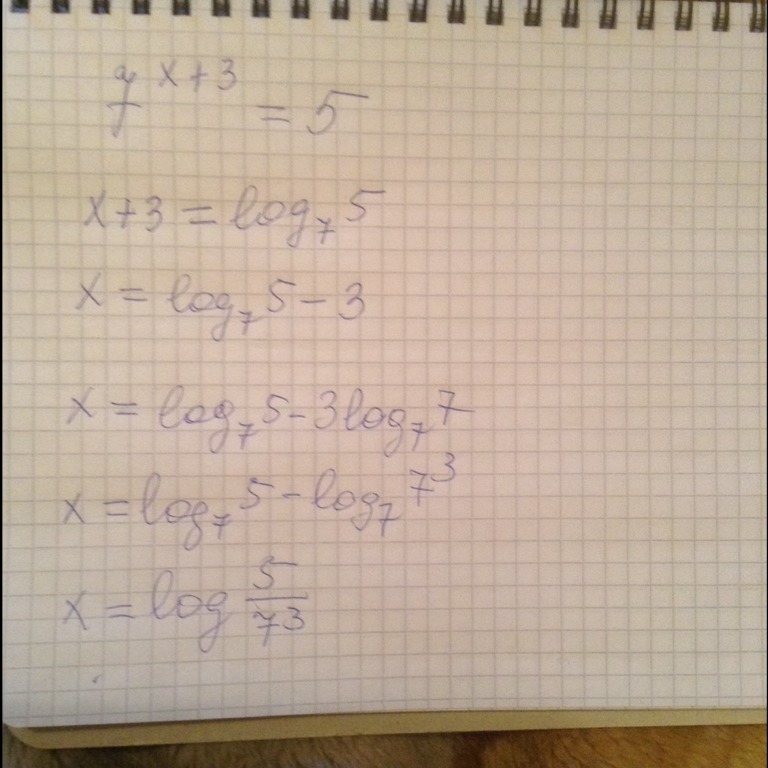 7^{x+3} = 5
x+3 = log₇ 5
x = log₇ 5 - 3
x = log₇ 5 - 3 log₇ 7
x = log₇ 5 - log₇ 7³
x = log 5/7³